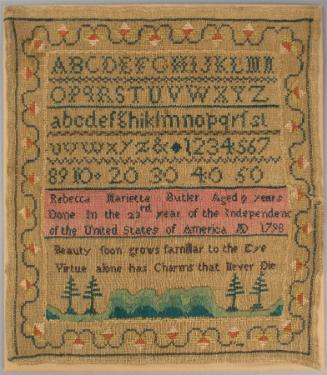 ABCDEFGHIJKLMN
OPQRSTUVWXYZ
abcdefghiklmnopqrſst
uvwxyz& 1234567
8910 20 30 40 50
Rebecca Marietta Butler Aged 9 years
Done In the 23rd year of the Independenc
of the United States of America AD 1798
Beauty ſoon grows familiar to the Eye
Virtue alone has Charms that Never Die